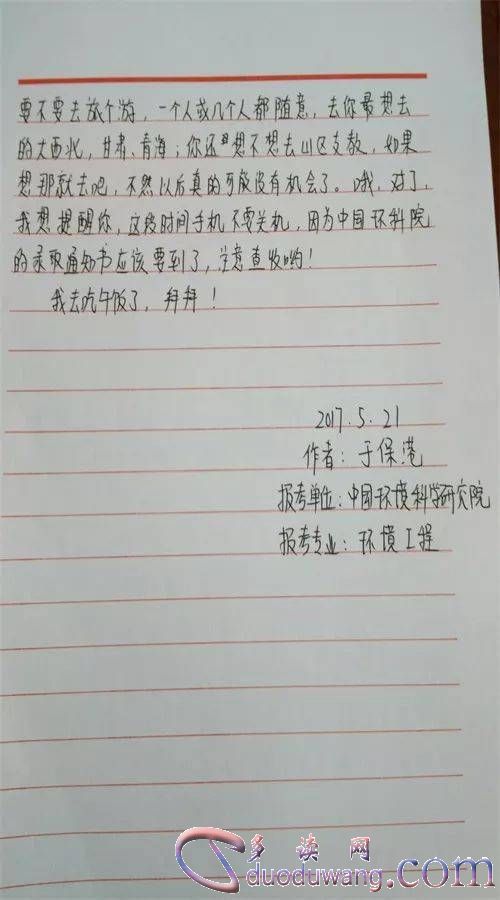 要不要去旅个游，一个人或几个人都随意，去你最想去
的大西北，甘肃、青海；你还想不想去山区支教，如果
想那就去吧，不然以后真的可能没有机会了。哦，对了，
我想提醒你，这段时间手机不要关机，因为中国环科院
的录取通知书应该要到了，注意查收哟！
我去吃午饭了，拜拜！
2017.5.21
作者：于保港
报考单位：中国环境科学研究院
报考专业：环境工程
多读网
duoduwang.com